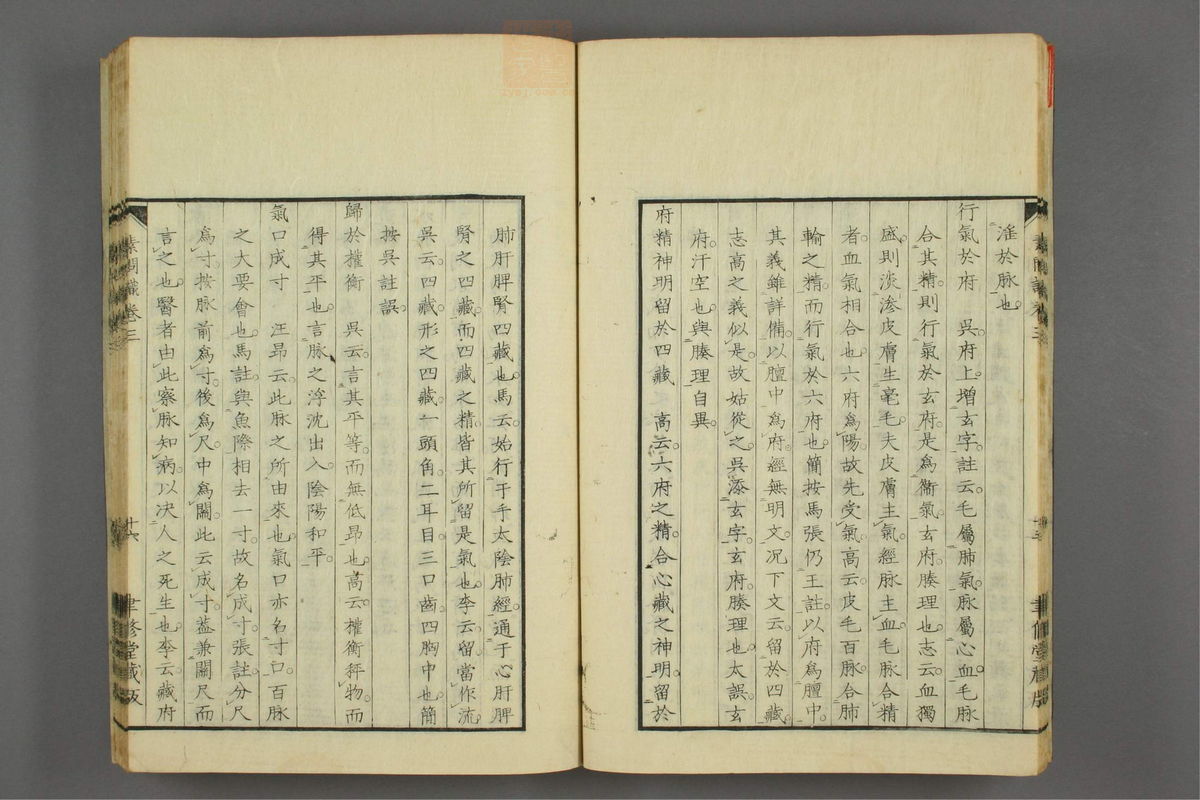 淫於脉也
行氣於府　吳府上增玄字註云毛屬肺氣脉屬心血毛脉
合其精則行氣於玄府是爲衞氣玄府腠理也志云血獨
盛則淡滲皮膚生毫毛夫皮膚主氣經脉主血毛脉合精
者血氣相合也六府爲陽故先受氣高云皮毛百脉合肺
輸之精而行氣於六府也簡按馬張仍王註以府爲膻中
其義雖詳備以膻中爲府經無明文况下文云留於四藏
志高之義似是故姑從之吳添玄字玄府腠理也太誤玄
府汗空也與腠理自異
府精神明留於四藏　高云六府之精合心藏之神明留於
肺肝脾腎四藏也馬云始行于手太陰肺經通于心肝脾
腎之四藏而四藏之精皆其所留是氣也李云留當作流
吳云四藏形之四藏一頭角二耳目三口齒四胸中也簡
按吳註誤
歸於權衡　吳云言其平等而無低昂也高云權衡秤物而
得其平也言脉之浮沈出入陰陽和平
氣口成寸　汪昂云此脉之所由來也氣口亦名寸口百脉
之大要會也馬註與魚際相去一寸故名成寸張註分尺
爲寸按脉前爲寸後爲尺中爲關此云成寸葢兼關尺而
言之也醫者由此察脉知病以决人之死生也李云藏府
素問識卷三
廿六
聿修堂藏版